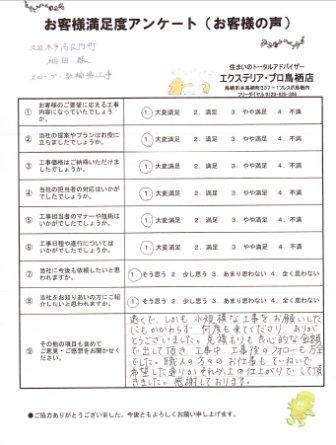 お客様満足度アンケート(お客様の声)
住まいのトータルアドバイザー
エクステリア・プロ鳥栖店
① お客様のご要望に応える工事内容になっていたでしょうか。 1. 大変満足 2. 満足 3. やや満足 4. 不満
② 当社の提案やプランはお役に立ちましたでしょうか。 1. 大変満足 2. 満足 3. やや満足 4. 不満
③ 工事価格はご納得いただけましたでしょうか。 1. 大変満足 2. 満足 3. やや満足 4. 不満
④ 当社の担当者の対応はいかがでしたでしょうか。 1. 大変満足 2. 満足 3. やや満足 4. 不満
⑤ 工事担当者のマナーや技術はいかがでしたでしょうか。 1. 大変満足 2. 満足 3. やや満足 4. 不満
⑥ 工事日程や進行についてはいかがでしたでしょうか。 1. 大変満足 2. 満足 3. やや満足 4. 不満
⑦ 当社に今後も依頼したいと思われますか。 1. そう思う 2. 少し思う 3. あまり思わない 4. 全く思わない
⑧ 当社をお知りあいの方にご紹介したいと思われますか。 1. そう思う 2. 少し思う 3. あまり思わない 4. 全く思わない
⑨ その他の項目も含めてご意見・ご感想をお聞かせください。
遠くて、しかも小規模な工事をお願いした
にもかかわらず 何度も来てくださり、あり
がとうございました。見積もりも良心的な金額
で出して頂き 工事中、工事後のフォローも万全
でした。職人の方々のお仕事もていねいで
希望した通りかそれ以上の仕上がりでして頂
きました。感謝しております。
●ご協力ありがとうございました。今後ともよろしくお願い申し上げます。